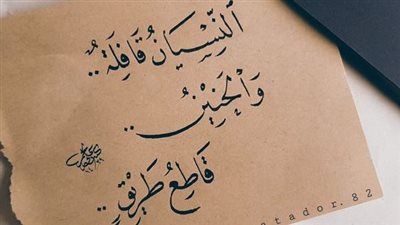 اَلنِّسْيَانُ قَافِلَةٌ..
وَالْحَنِيْنُ..
قَاطِعُ طَرِيْقٍ..
tador.82